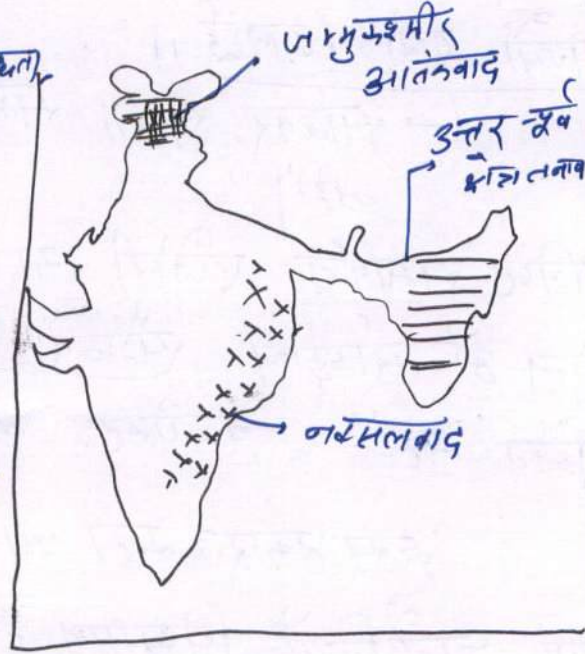 जम्मु कश्मीर
आतंकवाद
उत्तर-पूर्व
तनाव
नक्सलवाद